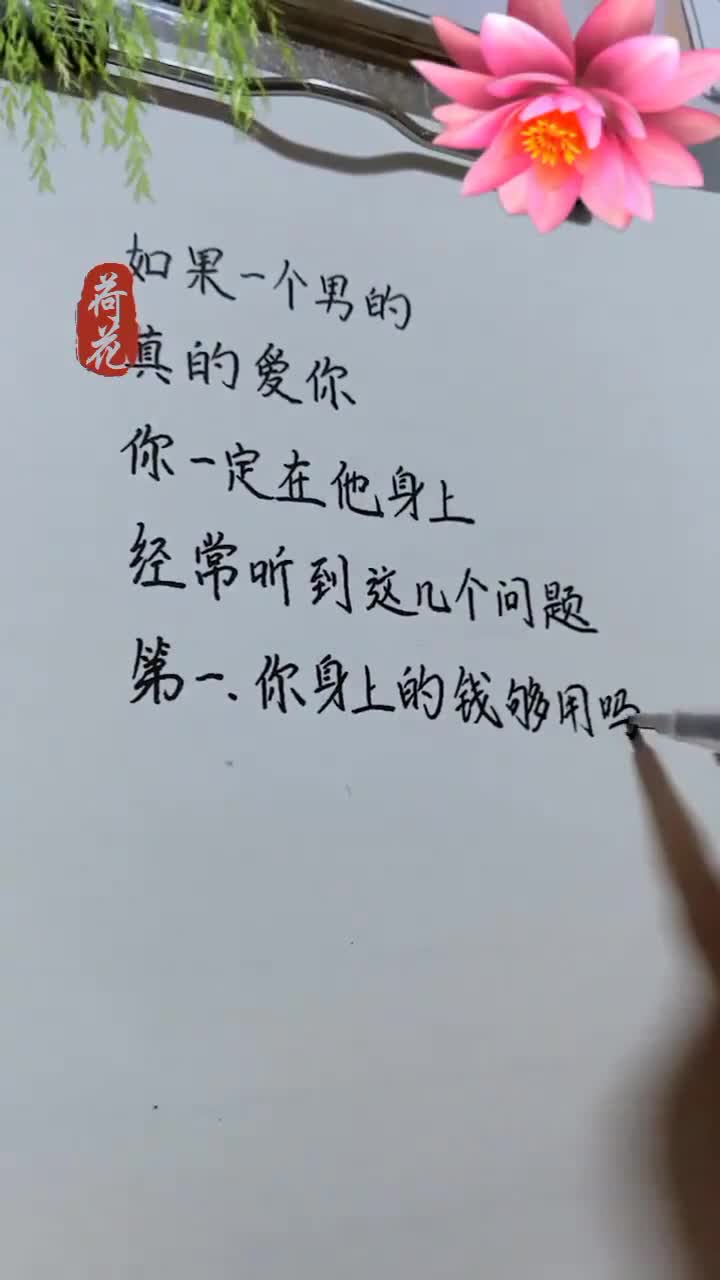 如果一个男的
荷花
真的爱你
你一定在他身上
经常听到这几个问题
第一、你身上的钱够用吗